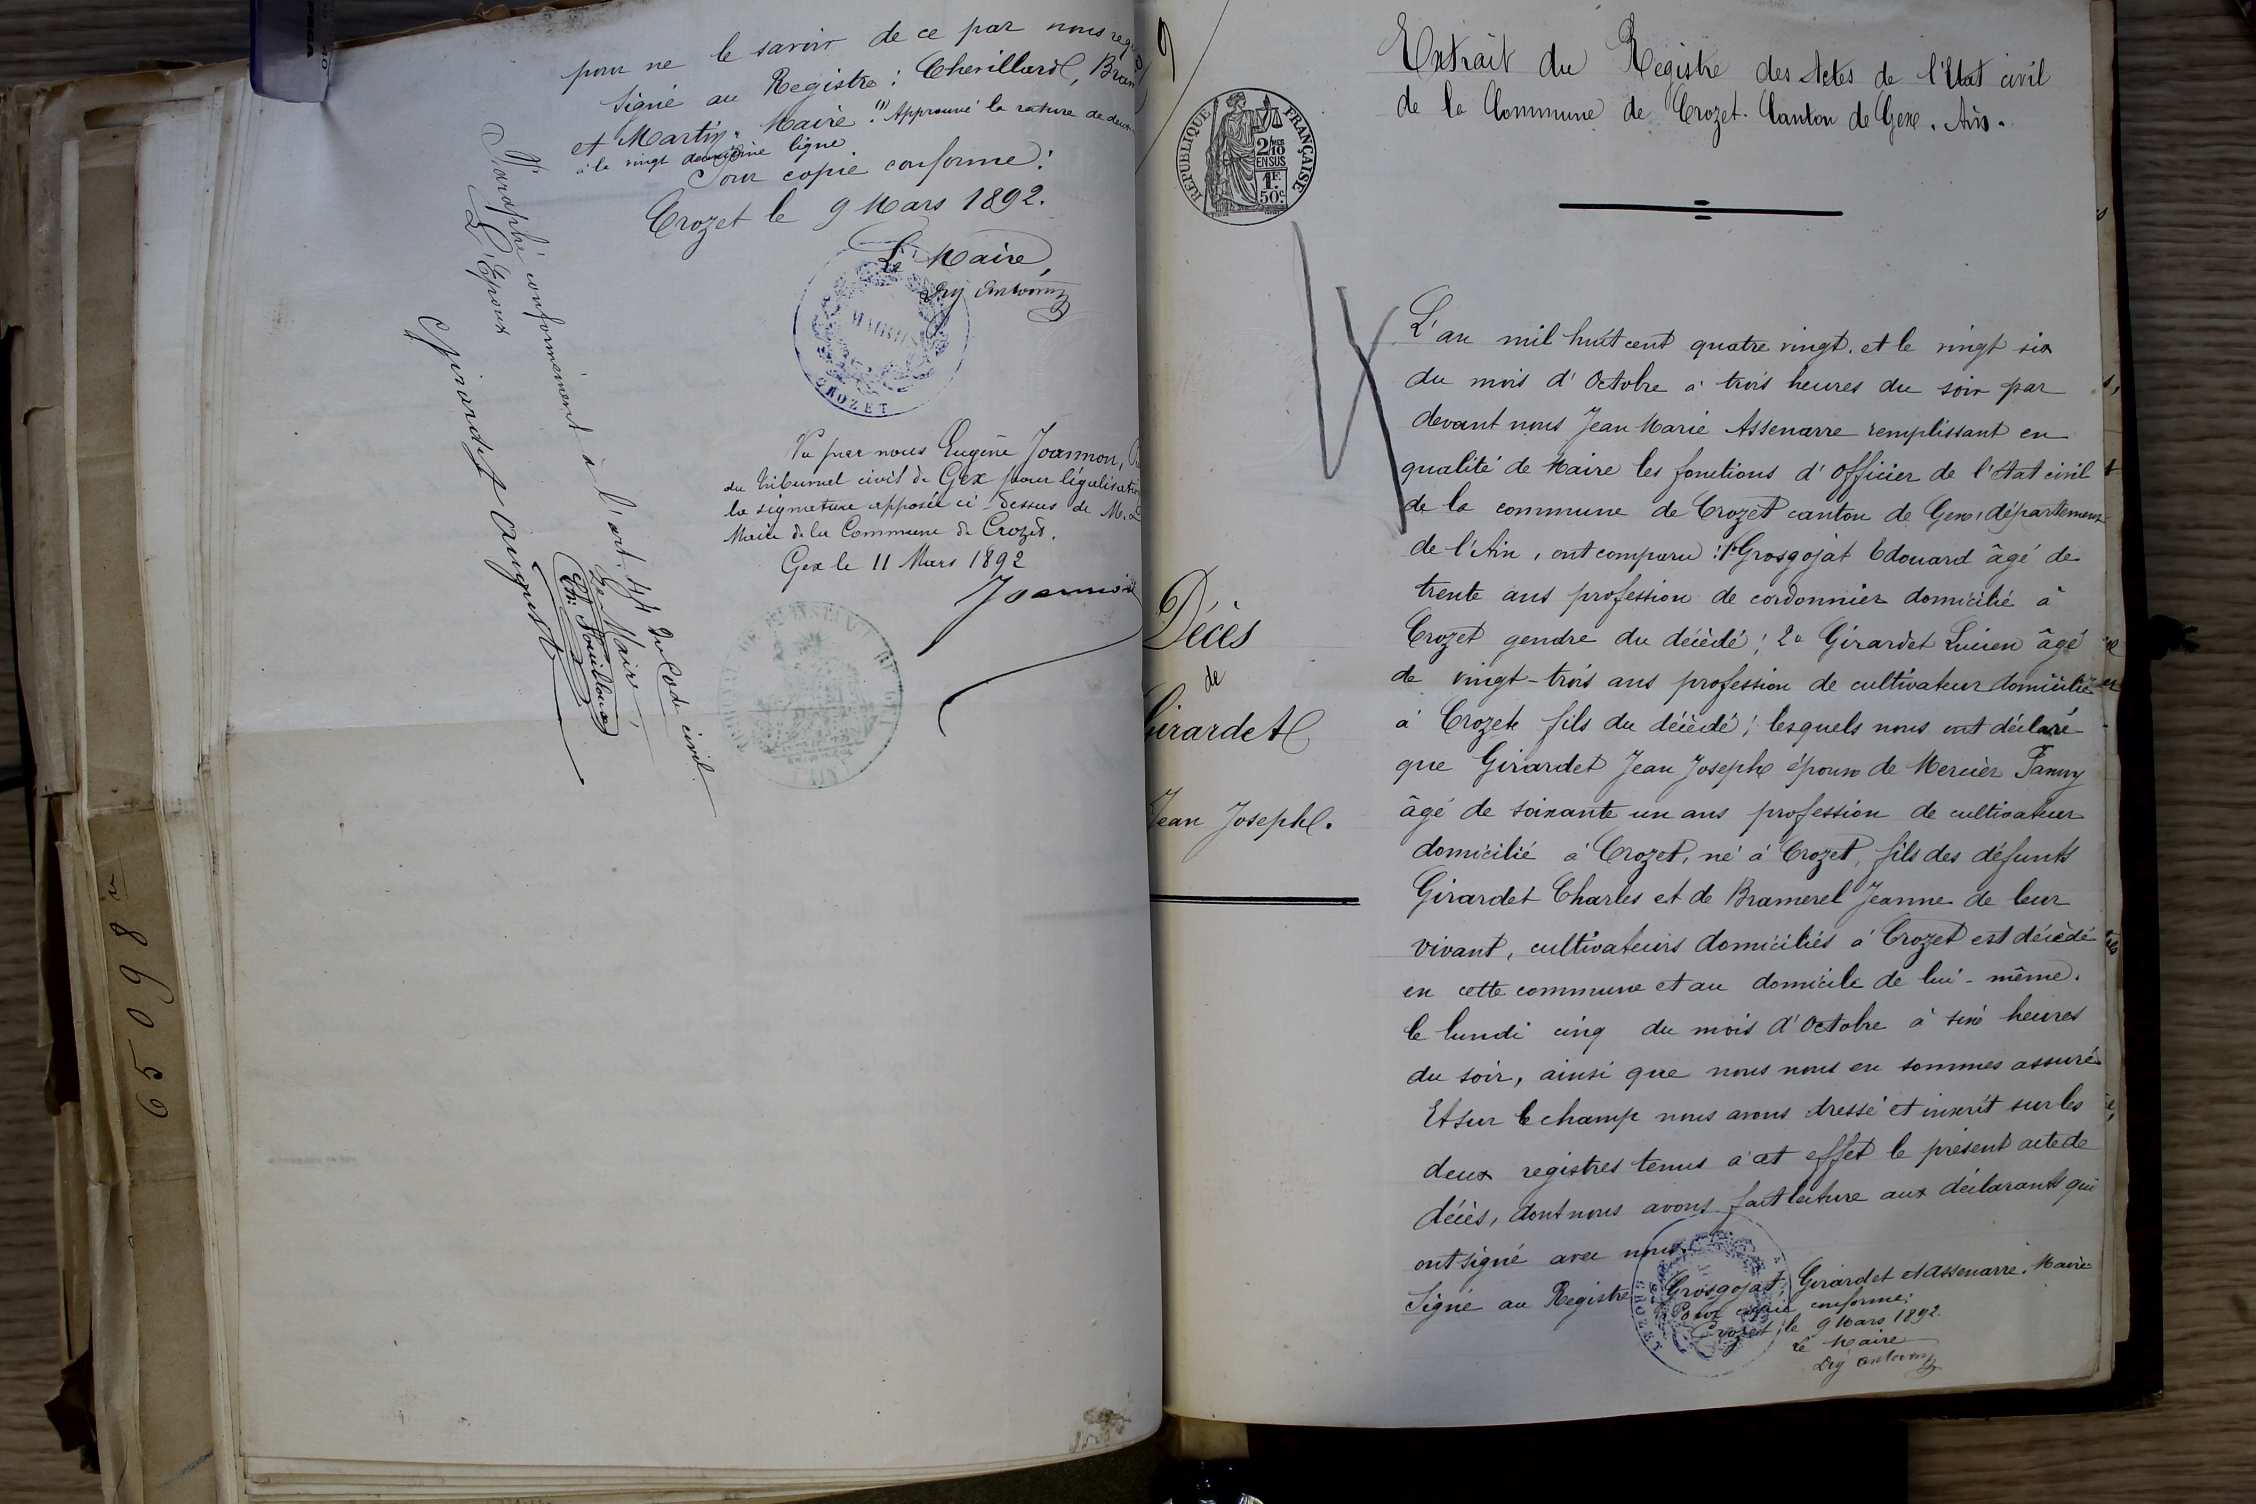 pour ne le savoir de ce par nous
Signé au Registre : Chevillard,
et Martin, Maire. (1) Approuvé la rature de deux
à la vingt deuxième ligne
Pour copie conforme :
Crozet le 9 Mars 1892.
Le Maire,
MAIRIE
CROZET
Vu par nous Eugène Joannon,
du tribunal civil de Gex pour légalisation
la signature apposée ci-dessus de M.
Maire de la Commune de Crozet.
Gex le 11 Mars 1892
Joannon
Paraphé conformément à l'art. 44 du Code civil.
L'Epoux
Le Maire,
Girardet August
65098
9
Extrait du Registre des Actes de l'Etat civil
de la Commune de Crozet. Canton de Gex. Ain.
REPUBLIQUE FRANÇAISE
2/10
EN SUS
1F.
50c.
L'an mil huit cent quatre vingt. et le vingt six
du mois d'Octobre à trois heures du soir par
devant nous Jean Marie Assenarre remplissant en
qualité de Maire les fonctions d'officier de l'Etat civil
de la commune de Crozet canton de Gex, département
de l'Ain, ont comparu : 1º Grosgojat Edouard âgé de
trente ans profession de cordonnier domicilié à
Crozet gendre du décédé ; 2º Girardet Lucien âgé
de vingt-trois ans profession de cultivateur domicilié
à Crozet fils du décédé ; lesquels nous ont déclaré
que Girardet Jean Joseph époux de Mercier Fanny
âgé de soixante un ans profession de cultivateur
domicilié à Crozet, né à Crozet, fils des défunts
Girardet Charles et de Bramerel Jeanne de leur
vivant, cultivateurs domiciliés à Crozet est décédé
en cette commune et au domicile de lui-même.
le lundi cinq du mois d'Octobre à six heures
du soir, ainsi que nous nous en sommes assuré
Et sur le champ nous avons dressé et inscrit sur les
deux registres tenus à cet effet le présent acte de
décès, dont nous avons fait lecture aux déclarants qui
ont signé avec nous.
Signé au Registre Grosgojat, Girardet et Assenarre. Maire
Pour copie conforme :
Crozet, le 9 Mars 1892.
Le Maire
CROZET
Décès
de
Girardet
Jean Joseph.